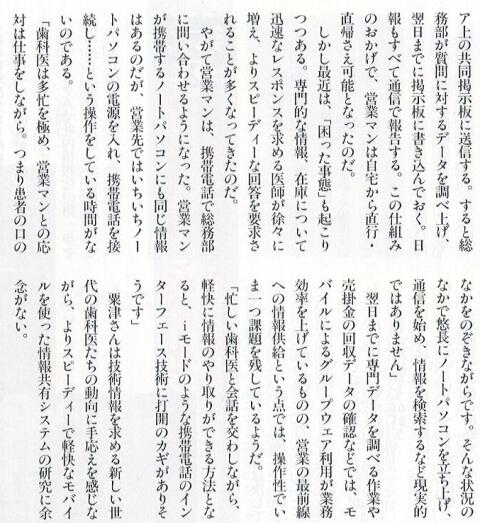 ア上の共同掲示板に送信する。すると総
務部が質問に対するデータを調べ上げ、
翌日までに掲示板に書き込んでおく。日
報もすべて通信で報告する。この仕組み
のおかげで、営業マンは自宅から直行・
直帰さえ可能となったのだ。
しかし最近は、「困った事態」も起こり
つつある。専門的な情報、在庫について
迅速なレスポンスを求める医師が徐々に
増え、よりスピーディーな回答を要求さ
れることが多くなってきたのだ。
やがて営業マンは、携帯電話で総務部
に問い合わせるようになった。営業マン
が携帯するノートパソコンにも同じ情報
はあるのだが、営業先ではいちいちノー
トパソコンの電源を入れ、携帯電話を接
続し……という操作をしている時間がな
いのである。
「歯科医は多忙を極め、営業マンとの応
対は仕事をしながら。つまり患者の口の
なかをのぞきながらです。そんな状況の
なかで悠長にノートパソコンを立ち上げ、
通信を始め、情報を検索するなど現実的
ではありません」
翌日までに専門データを調べる作業や
売掛金の回収データの確認などでは、モ
バイルによるグループウェア利用が業務
効率を上げているものの、営業の最前線
への情報供給という点では、操作性でい
ま一つ課題を残しているようだ。
「忙しい歯科医と会話を交わしながら、
軽快に情報のやり取りができる方法とな
ると、iモードのような携帯電話のイン
ターフェース技術に打開のカギがありそ
うです」
粟津さんは技術情報を求める新しい世
代の歯科医たちの動向に手応えを感じな
がら、よりスピーディーで軽快なモバイ
ルを使った情報共有システムの研究に余
念がない。